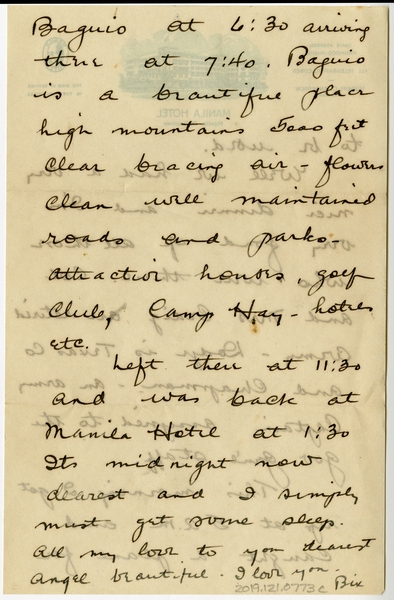 Baguio at 6:30 arriving
there at 7:40. Baguio
is a beautiful place
high mountains 5000 feet
clear bracing air - flowers
clean well maintained
roads and parks -
attractive houses, golf
club, Camp Hay - hotels
etc.
Left there at 11:30
and was back at
Manila Hotel at 1:30
Its midnight now
dearest and I simply
must get some sleep.
All my love to you dearest
angel beautiful. I love you.
Bix
2019.121.0773c
MANILA HOTEL